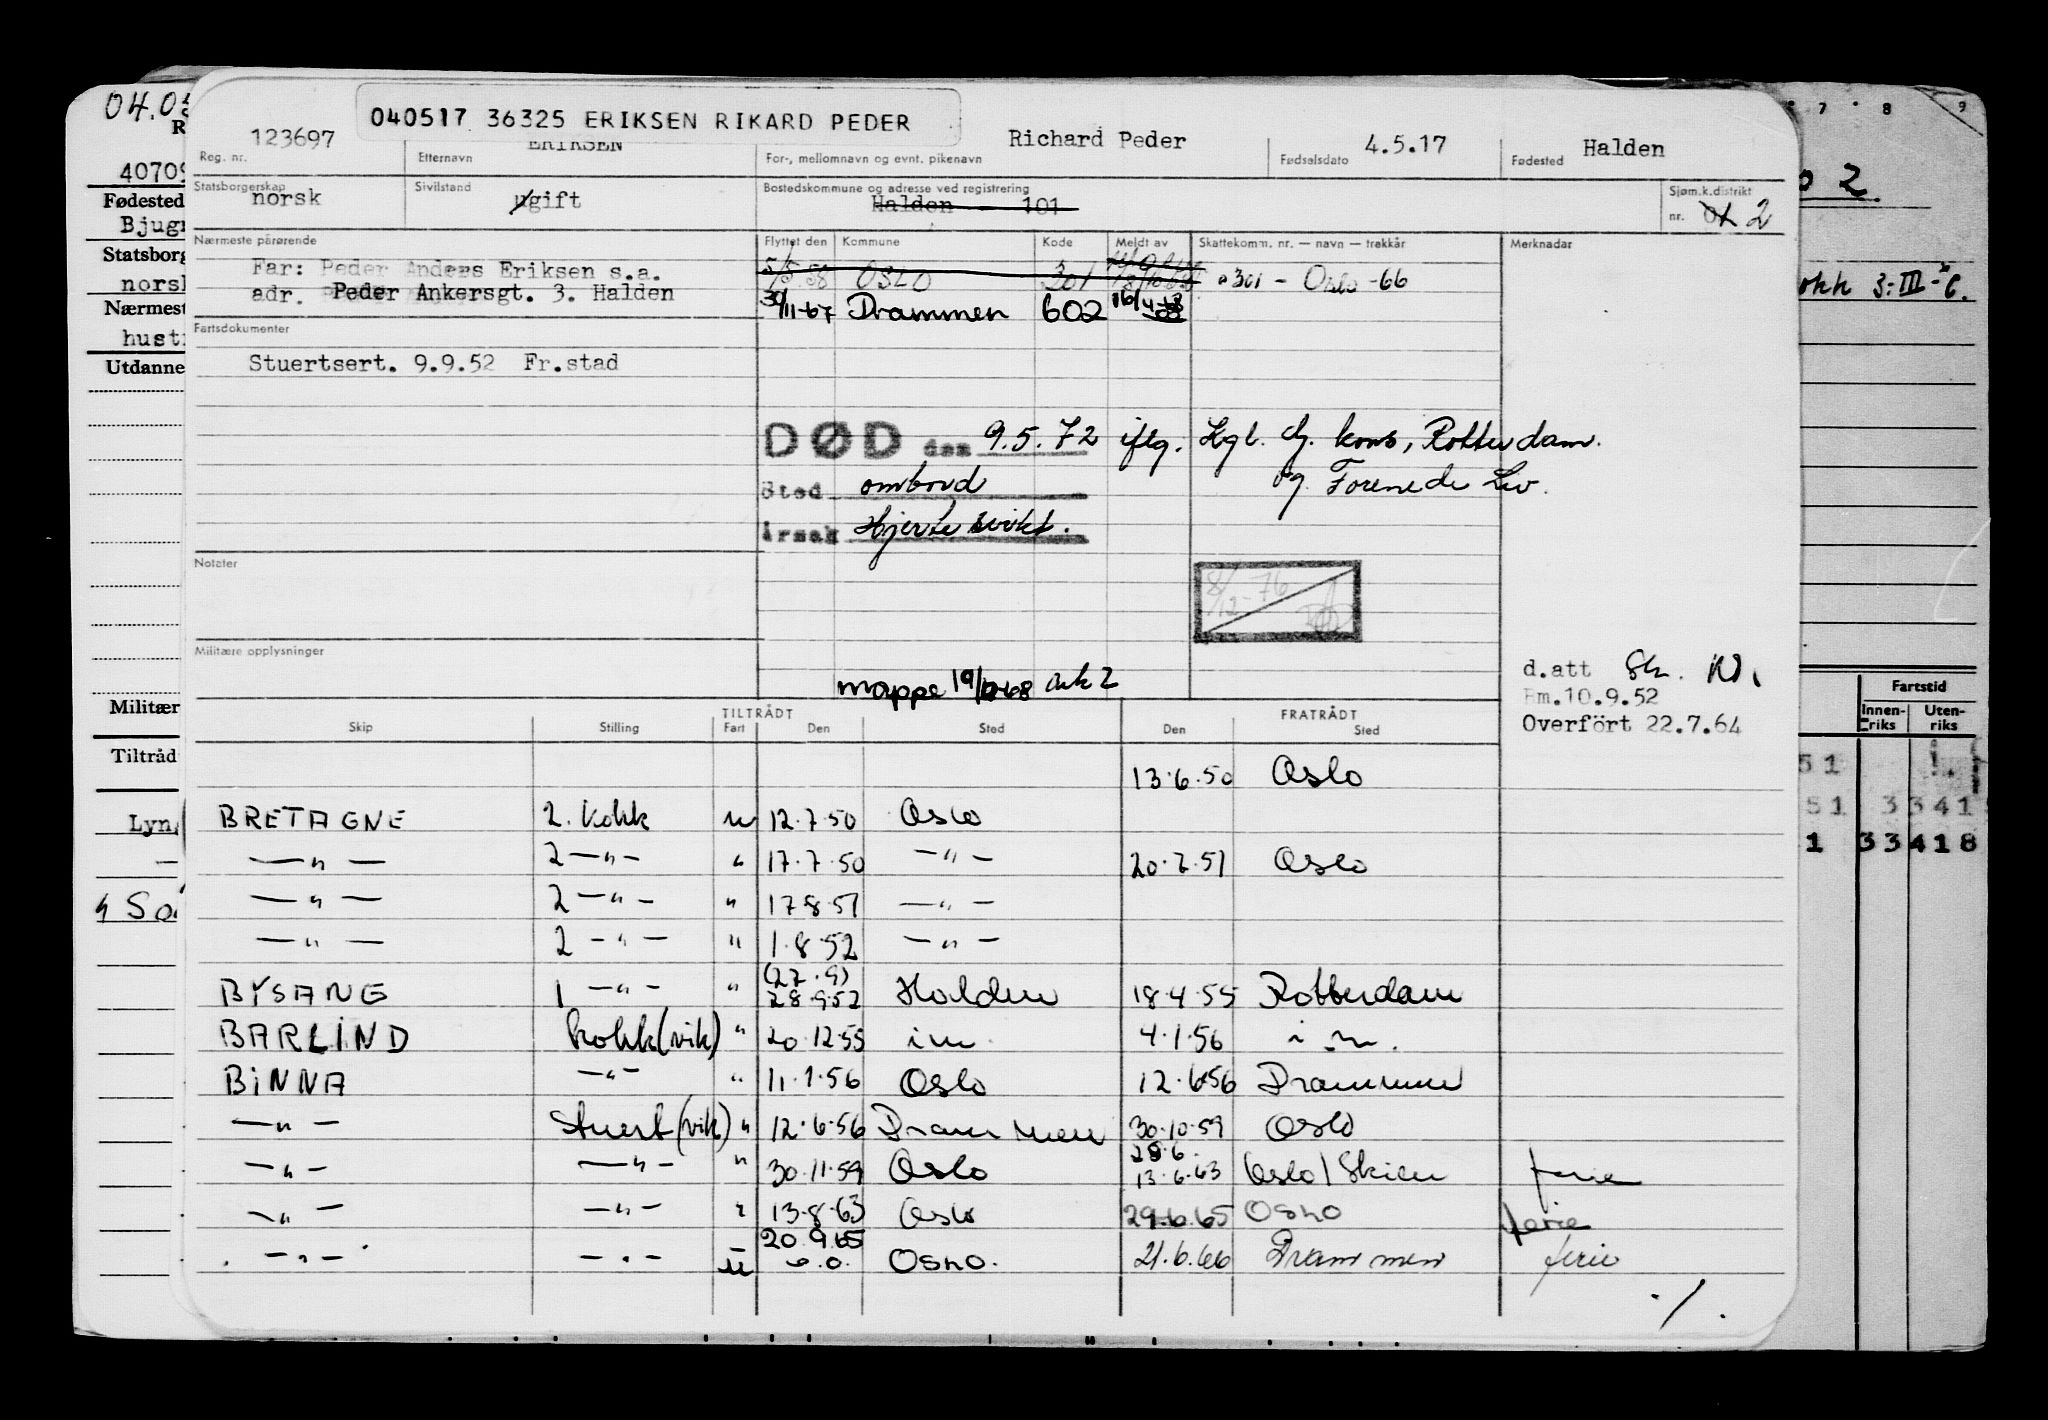 04.0
040517 36325 ERIKSEN RIKARD PEDER
123697 ERIKSEN Richard Peder 4.5.17 Halden
Reg. nr. Etternavn For-, mellomnavn og evnt. pikenavn Fødselsdato Fødested
Statsborgerskap Sivilstand Bostedskommune og adresse ved registrering Sjøm.k.distrikt
norsk ugift Halden - 101 nr. 01 2
Nærmeste pårørende Flyttet den Kommune Kode Meldt av Skattekomm. nr. — navn — trekkår Merknadar
Far: Peder Anders Eriksen s.a. 5/5.58 OSLO 301 301 - Oslo -66
adr. Peder Ankersgt. 3. Halden 30/11-67 Drammen 602
Fartsdokumenter
Stuertsert. 9.9.52 Fr.stad
DØD den 9.5.72 iflg. Kgl. G. kons, Rotterdam.
Sted ombord og Forenede Liv.
Årsak Hjertesvikt.
Notater
8/12-76
Militære opplysninger
mappe 19/12-68 ark 2
d.att Sk. W.
Hm.10.9.52
Overfört 22.7.64
TILTRÅDT FRATRÅDT
Skip Stilling Fart Den Sted Den Sted
13.6.50 Oslo
BRETAGNE 2. kokk u 12.7.50 Oslo
—"— 2—"— " 17.7.50 —"— 20.7.51 Oslo
—"— 2—"— " 17.8.51 —"—
—"— 2—"— " 1.8.52 —"—
(27.9)
BYSANG 1—"— " 28.9.52 Halden 18.4.55 Rotterdam
BARLIND kokk(vik) " 20.12.55 im. 4.1.56 i m.
BINNA —"— " 11.1.56 Oslo 12.6.56 Drammen
—"— stuert(vik) " 12.6.56 Drammen 30.10.59 Oslo
28.6.
—"— —"— " 30.11.59 Oslo 13.6.63 Oslo/Skien ferie
—"— —"— " 13.8.63 Oslo 29.6.65 OSLO ferie
20.9.65
—"— —"— u 6.0. OSLO. 21.6.66 Drammen ferie
./.
4070
Fødested
Bjugn
Statsborg
norsk
Nærmest
hustr
Utdanne
Militær
Tiltråd
Lyn
7 8 9
2.
kokk 3-III-C.
Fartstid
Innen- Uten-
riks riks
51
51 3 341
1 33 418